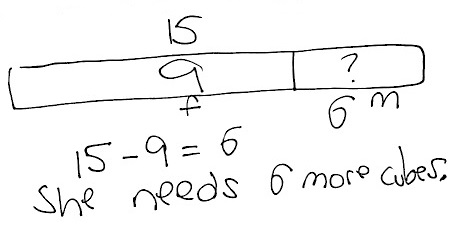 15
9 ?
f 6 m
15-9=6
She needs 6 more cubes.